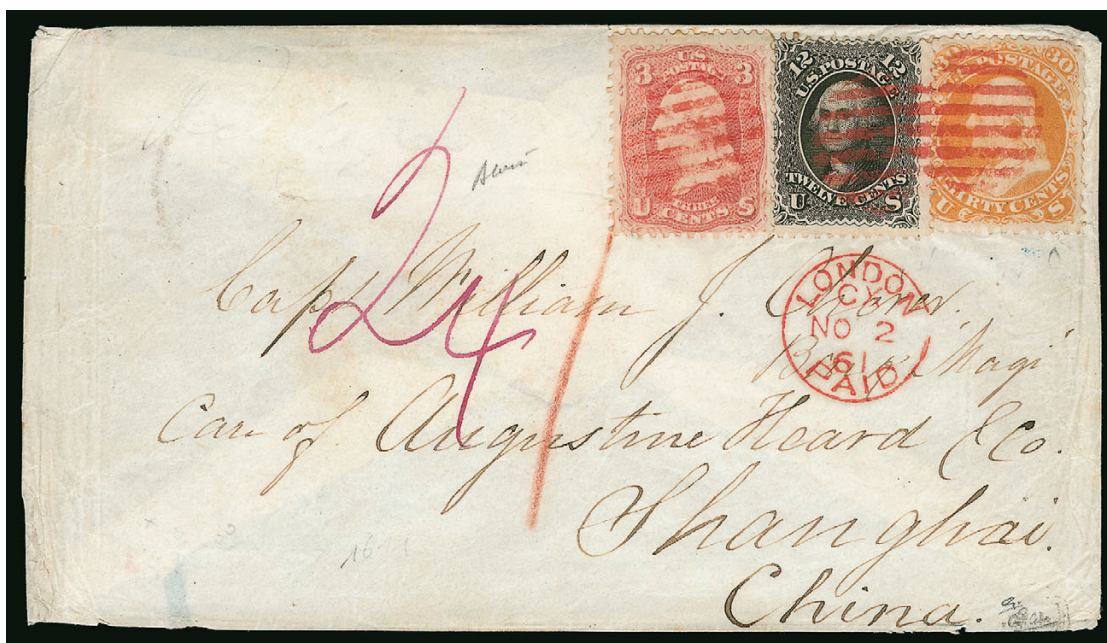 3 U.S. POSTAGE 3
THREE CENTS
U S
12 U.S. POSTAGE 12
TWELVE CENTS
U S
30 U.S. POSTAGE 30
THIRTY CENTS
U S
24
LONDON
CY
NO 2
61
PAID
Capt William J.
Magi
Care of Augustine Heard & Co.
Shanghai.
China.